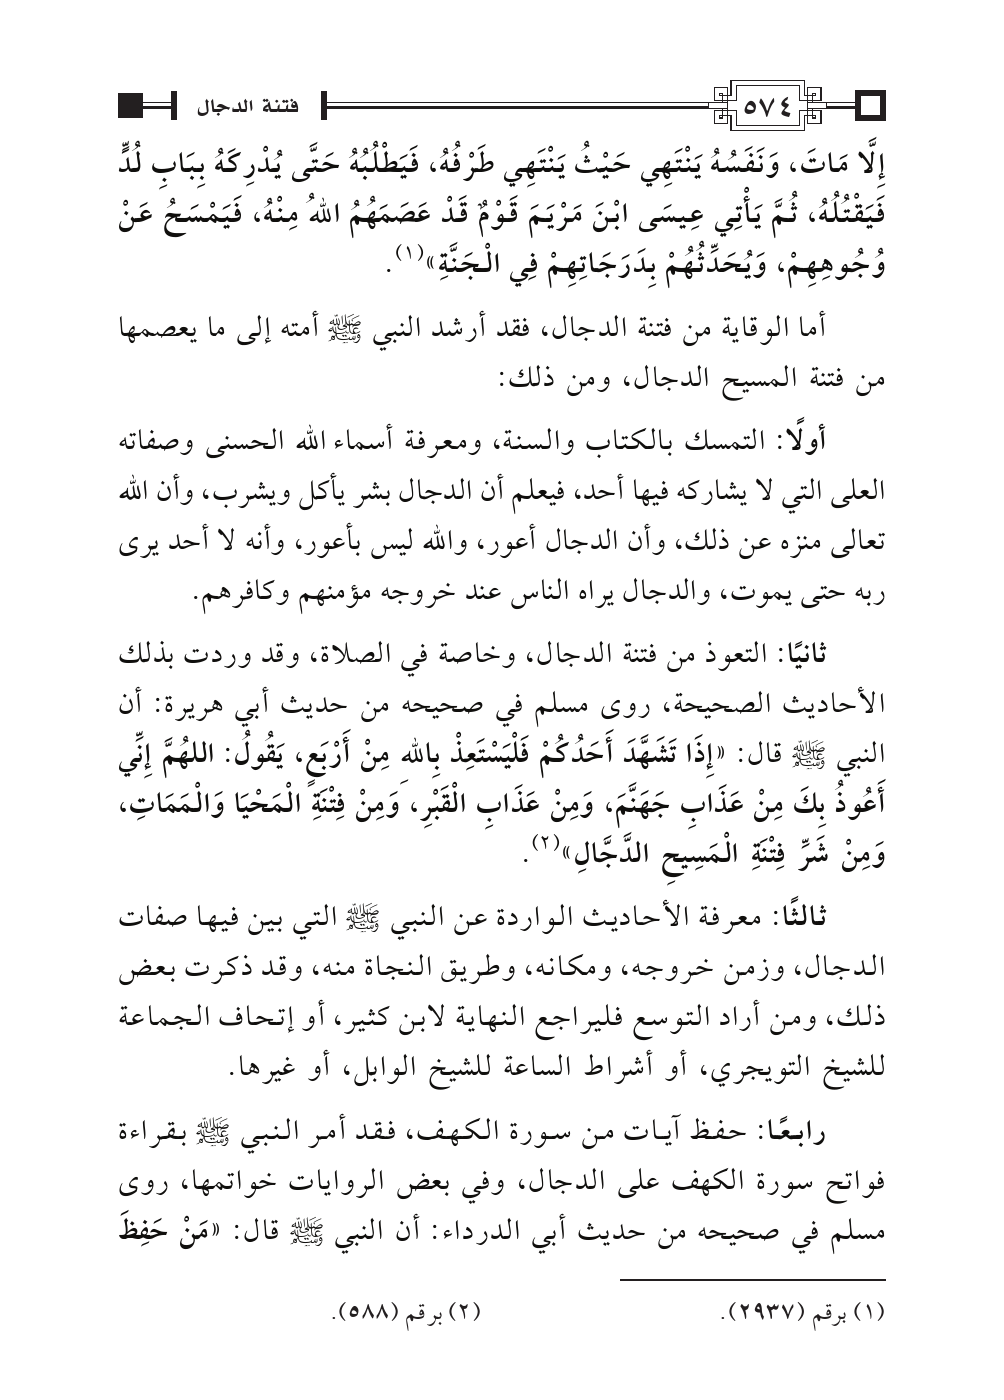 ٥٧٤ فتنة الدجال
إِلَّا مَاتَ، وَنَفَسُهُ يَنْتَهِي حَيْثُ يَنْتَهِي طَرْفُهُ، فَيَطْلُبُهُ حَتَّى يُدْرِكَهُ بِبَابِ لُدٍّ
فَيَقْتُلُهُ، ثُمَّ يَأْتِي عِيسَى ابْنَ مَرْيَمَ قَوْمٌ قَدْ عَصَمَهُمُ اللهُ مِنْهُ، فَيَمْسَحُ عَنْ
وُجُوهِهِمْ، وَيُحَدِّثُهُمْ بِدَرَجَاتِهِمْ فِي الْجَنَّةِ»(١).
أما الوقاية من فتنة الدجال، فقد أرشد النبي ﷺ أمته إلى ما يعصمها
من فتنة المسيح الدجال، ومن ذلك:
أولًا: التمسك بالكتاب والسنة، ومعرفة أسماء الله الحسنى وصفاته
العلى التي لا يشاركه فيها أحد، فيعلم أن الدجال بشر يأكل ويشرب، وأن الله
تعالى منزه عن ذلك، وأن الدجال أعور، والله ليس بأعور، وأنه لا أحد يرى
ربه حتى يموت، والدجال يراه الناس عند خروجه مؤمنهم وكافرهم.
ثانيًا: التعوذ من فتنة الدجال، وخاصة في الصلاة، وقد وردت بذلك
الأحاديث الصحيحة، روى مسلم في صحيحه من حديث أبي هريرة: أن
النبي ﷺ قال: «إِذَا تَشَهَّدَ أَحَدُكُمْ فَلْيَسْتَعِذْ بِاللهِ مِنْ أَرْبَعٍ، يَقُولُ: اللهُمَّ إِنِّي
أَعُوذُ بِكَ مِنْ عَذَابِ جَهَنَّمَ، وَمِنْ عَذَابِ الْقَبْرِ، وَمِنْ فِتْنَةِ الْمَحْيَا وَالْمَمَاتِ،
وَمِنْ شَرِّ فِتْنَةِ الْمَسِيحِ الدَّجَّالِ»(٢).
ثالثًا: معرفة الأحاديث الواردة عن النبي ﷺ التي بين فيها صفات
الدجال، وزمن خروجه، ومكانه، وطريق النجاة منه، وقد ذكرت بعض
ذلك، ومن أراد التوسع فليراجع النهاية لابن كثير، أو إتحاف الجماعة
للشيخ التويجري، أو أشراط الساعة للشيخ الوابل، أو غيرها.
رابعًا: حفظ آيات من سورة الكهف، فقد أمر النبي ﷺ بقراءة
فواتح سورة الكهف على الدجال، وفي بعض الروايات خواتمها، روى
مسلم في صحيحه من حديث أبي الدرداء: أن النبي ﷺ قال: «مَنْ حَفِظَ
(١) برقم (٢٩٣٧). (٢) برقم (٥٨٨).